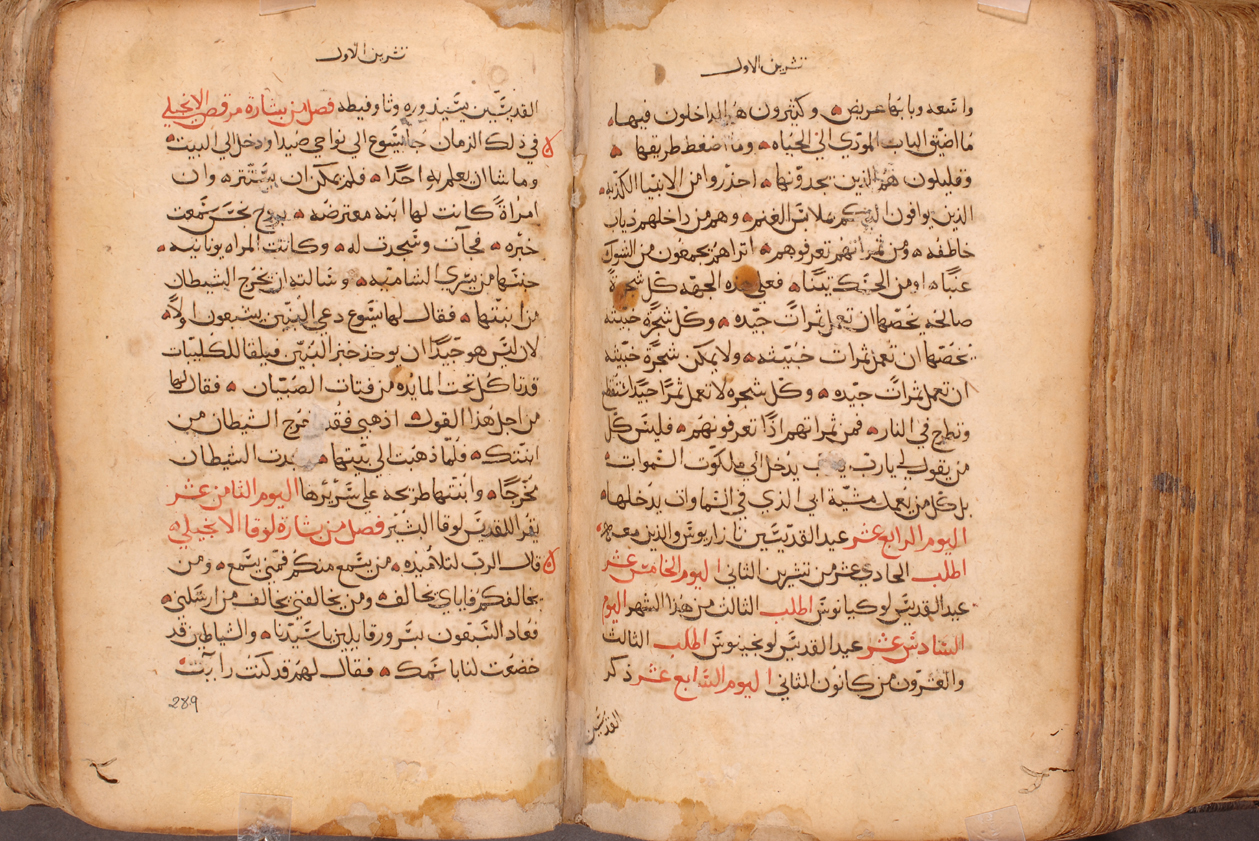 تشرين الاول
واسعه وبابها عريض وكثيرون هم الداخلون فيها
ما اضيق الباب المودي الى الحياه وما اضغط طريقها
وقليلون هم الذين يجدونها احذروا من الانبيا الكذبه
الذين يوافون اليكم بملابس الغنم وهم من داخلهم ذياب
خاطفه ومن ثمراتهم تعرفوهم اتراهم يجمعون من الشوك
عنبا او من الحسك تينا فعلى هذه الجهه كل شجرة
صالحه يخصها ان تعمل ثمرات جيده وكل شجرة خبيثه
يخصها ان تعمل ثمرات خبيثه ولا يمكن شجرة خبيثه
ان تعمل ثمرات جيده وكل شجره لا تعمل ثمرا جيدا تقطع
وتطرح في النار فمن ثمراتهم اذا تعرفونهم فليس كل
من يقول لي يارب يارب يدخل الى ملكوت السموات
بل كل من يعمل مشية ابي الذي في السماوات يدخلها
اليوم الرابع عشر عيد القديسين نازاريوس والذين معه
اطلب الحادي عشر من تشرين الثاني اليوم الخامس عشر
عيد القديس لوكيانوس اطلب الثالث من هذا الشهر اليوم
السادس عشر عيد القديس لونجينوس اطلب الثالث
والعشرون من كانون الثاني اليوم السابع عشر ذكر
القديسين
تشرين الاول
القديسين فصل من بشارة مرقص الانجيلي
في ذلك الزمان جا يسوع الى نواحي صيدا ودخل الى البيت
وما شا ان يعلم به احدا فلم يمكن ان يستتر وان
امراة كانت لها ابنه معترضه سمعت
خبره فجآت وسجدت له وكانت المراه يونانيه
جنسها من سري الشاميه وسالته ان يخرج الشيطان
من ابنتها فقال لها يسوع دعي البنين يشبعون اولا
لان ليس هو جيدا ان يوخذ خبز البنين فيلقا للكلبات
قد تاكل تحت المايده من فتات الصبيان فقال لها
من اجل هذا القول اذهبي فقد خرج الشيطان من
ابنتك فلما ذهبت الى بيتها وجدت الشيطان
مخرجا وابنتها طريحه على سريرها اليوم الثامن عشر
يقرا للقديس لوقا البشير فصل من بشارة لوقا الانجيلي
قال الرب لتلاميذه من يسمع منكم فمني يسمع ومن
يخالفكم فاياي يخالف ومن يخالفني يخالف من ارسلني
فعاد السبعون بسرور قايلين يا سيدنا والشياطين قد
خضعت لنا باسمك فقال لهم قد كنت رايت
289